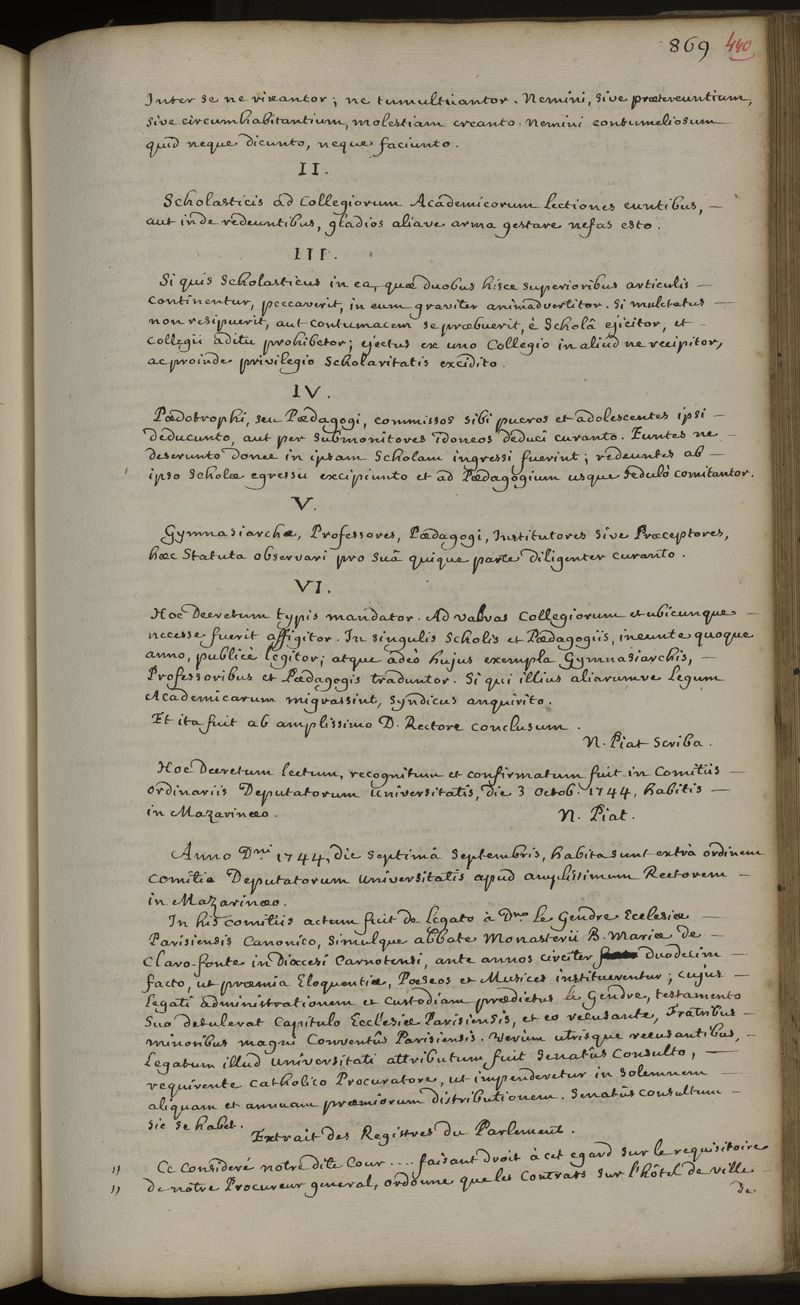 869 440
Inter se ne rixantor; ne tumultuantor. Nemini, sive prætereuntium,
sive circumhabitantium, molestiam creanto. Nemini contumeliosum
quid neque dicunto, neque faciunto.
II.
Scholasticis ad Collegiorum Academicorum Lectiones euntibus, —
aut inde redeuntibus, gladios aliave arma gestare nefas esto.
III.
Si quis Scholasticus in ea, quæ duobus hisce superioribus articulis —
continentur, peccaverit, in eum graviter animadvertitor. Si mulctatus —
non resipuerit, aut contumacem se præbuerit, è Scholâ ejicitor, et -
Collegii aditu prohibetor; ejectus ex uno Collegio in aliud ne recipitor,
ac proinde privilegio Scholaritatis excidito.
IV.
Pædotrophi, seu Pædagogi, commissos sibi pueros et adolescentes ipsi —
deducunto, aut per submonitores idoneos deduci curanto. Euntes ne -
deserunto donec in ipsam Scholam ingressi fuerint; redeuntes ab —
ipso Scholæ egressu excipiunto et ad Pædagogium usque sedulò comitantor.
V.
Gymnasiarchæ, Professores, Pædagogi, Institutores sive Præceptores,
hæc Statuta observari pro suâ quique parte diligenter curanto.
VI.
Hoc Decretum typis mandator. Ad valvas Collegiorum et ubicunque —
necesse fuerit affigitor. In singulis Scholis et Pædagogiis, ineunte quoque
anno, publicè legitor; atque adeò hujus exempla Gymnasiarchis, —
Professoribus et Pædagogis traduntor. Si qui illius aliarumve Legum
Academicarum migrassint, Syndicus anquirito.
Et ita fuit ab amplissimo D. Rectore conclusum.
N. Piat Scriba.
Hoc Decretum lectum, recognitum et confirmatum fuit in Comitiis —
ordinariis Deputatorum Universitatis, die 3 Octob. 1744, habitis —
in Mazarinæo. N. Piat.
Anno Dni 1744, die septimâ Septembris, habita sunt extrà ordinem
comitia Deputatorum Universitatis apud amplissimum Rectorem —
in Mazarinæo.
In his comitiis actum fuit de Legato à Dno Le Gendre Ecclesiæ —
Parisiensis Canonico, simulque abbate Monasterii B. Mariæ de —
Claro-fonte in Diœcesi Carnotensi, ante annos circiter duodecim —
facto, ut præmia Eloquentiæ, Poëseos et Musices instituerentur; cujus —
Legati administrationem et custodiam prædictus Le Gendre, testamento
suo detulerat Capitulo Ecclesiæ Parisiensis, et eo recusante, Fratribus —
minoribus magni Conventûs Parisiensis. Verùm utrisque recusantibus, -
Legatum illud Universitati attributum fuit Senatûs Consulto, —
requirente Catholico Procuratore, ut impenderetur in solemnem —
aliquam et annuam præmiorum distributionem. Senatûs Consultum —
sic se habet.
Extrait des Registres du Parlement.
" Ce Consideré notredite Cour .... faisant droit à cet egard sur le requisitoire
" de nôtre Procureur general, ordonne que les Contrats sur l'hôtel de ville
de